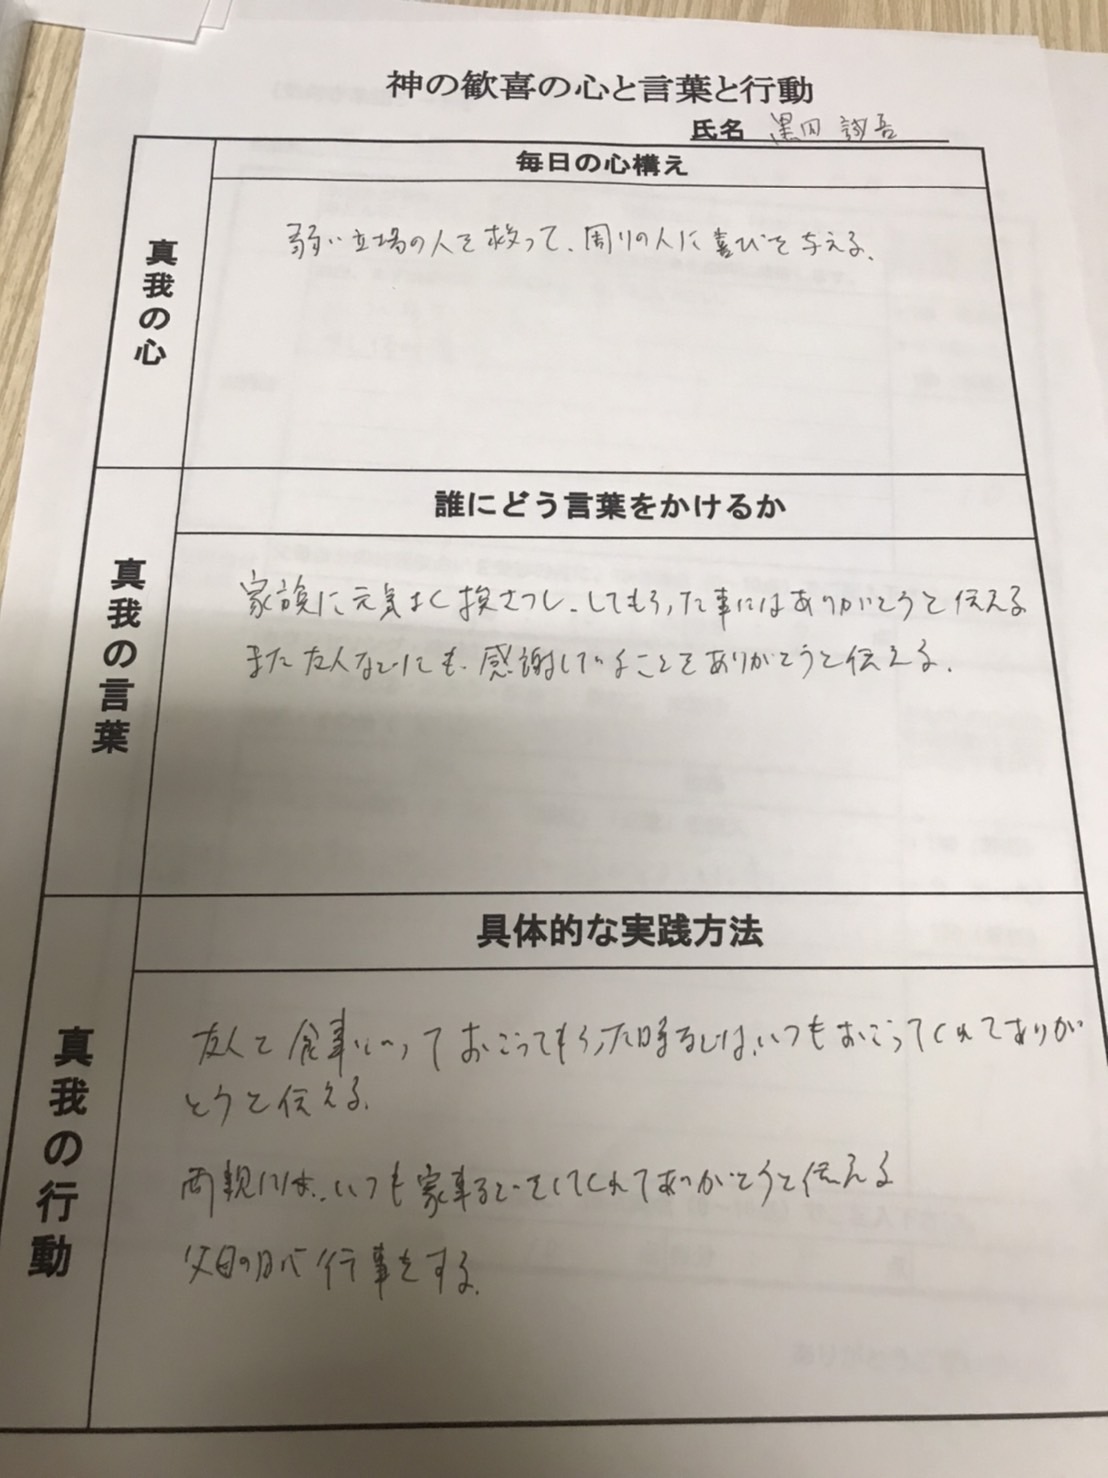 神の歓喜の心と言葉と行動
氏名 黒田 誠吾
毎日の心構え
真我の心
弱い立場の人を救って、周りの人に喜びを与える。
誰にどう言葉をかけるか
真我の言葉
家族に元気よく挨さつし、してもらった事にはありがとうと伝える
また友人などにも、感謝していることをありがとうと伝える。
具体的な実践方法
真我の行動
友人と食事にいっておごってもらった時などは、いつもおごってくれてありが
とうと伝える。
両親には、いつも家事などをしてくれてありがとうと伝える
父母の日に行事をする。